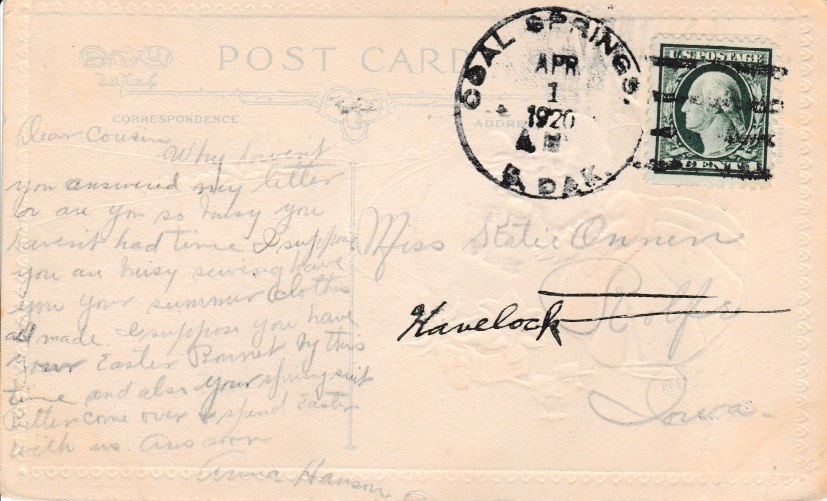 POST CARD
COAL SPRINGS.
APR
1
1920
AM
S. DAK.
U.S. POSTAGE
CENT
CORRESPONDENCE.
ADDRESS
Dear Cousin
Why havent
you answered my letter
or are you so busy you
havent had time I suppose
you are busy sewing have
you your summer clothes
all made. I suppose you have
your Easter Bonnet by this
time and also your spring suit
Better come over & spend Easter
with us. Ans soon
Anna Hanson
Miss Katie Onnen
Rolfe
Havelock
Iowa.